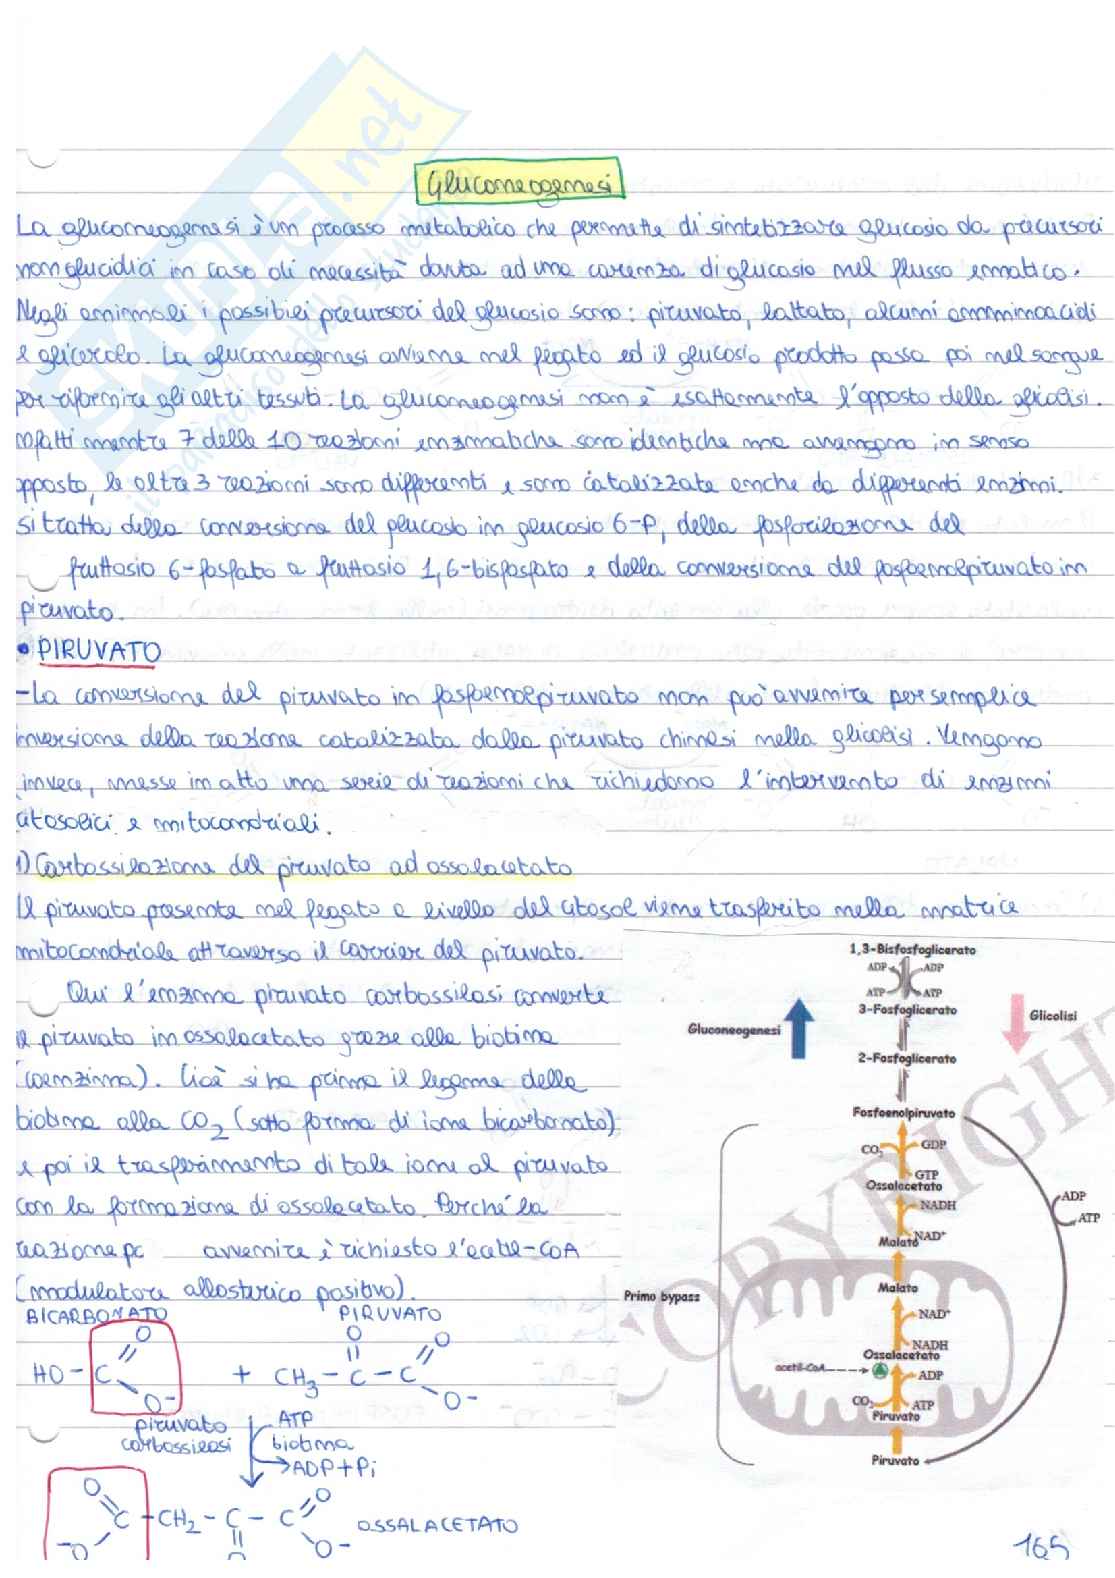 SKUOLA.net
il paradiso dello studente
Gluconeogenesi
La gluconeogenesi è un processo metabolico che permette di sintetizzare glucosio da precursori
non glucidici in caso di necessità dovuta ad una carenza di glucosio nel flusso ematico.
Negli animali i possibili precursori del glucosio sono: piruvato, lattato, alcuni amminoacidi
e glicerolo. La gluconeogenesi avviene nel fegato ed il glucosio prodotto passa poi nel sangue
per rifornire gli altri tessuti. La gluconeogenesi non è esattamente l'opposto della glicolisi.
nfatti mentre 7 delle 10 reazioni enzimatiche sono identiche ma avvengono in senso
opposto, le altre 3 reazioni sono differenti e sono catalizzate anche da differenti enzimi.
Si tratta della conversione del glucosio in glucosio 6-P, della fosforilazione del
fruttosio 6-fosfato a fruttosio 1,6-bisfosfato e della conversione del fosfoenolpiruvato in
piruvato.
• PIRUVATO
-La conversione del piruvato in fosfoenolpiruvato non può avvenire per semplice
inversione della reazione catalizzata dalla piruvato chinasi nella glicolisi. Vengono
invece, messe in atto una serie di reazioni che richiedono l'intervento di enzimi
citosolici e mitocondriali.
1) Carbossilazione del piruvato ad ossalacetato
Il piruvato presente nel fegato a livello del citosol viene trasferito nella matrice
mitocondriale attraverso il carrier del piruvato.
Qui l'enzima piruvato carbossilasi converte
il piruvato in ossalacetato grazie alla biotina
(coenzima). Cioè si ha prima il legame della
biotina alla CO2 (sotto forma di ione bicarbonato)
e poi il trasferimento di tale ione al piruvato
con la formazione di ossalacetato. Perché la
reazione po avvenire è richiesto l'acetil-CoA
(modulatore allosterico positivo).
BICARBONATO PIRUVATO
O O O
HO - C + CH3 - C - C
O- O-
piruvato carbossilasi
ATP
biotina
ADP+Pi
O O
C - CH2 - C - C OSSALACETATO
-O O O-
1,3-Bisfosfoglicerato
ADP ADP
ATP ATP
3-Fosfoglicerato
Gluconeogenesi Glicolisi
2-Fosfoglicerato
Fosfoenolpiruvato
CO2 GDP
GTP
Ossalacetato
NADH
ADP
ATP
Malato NAD+
Malato
Primo bypass
NAD+
NADH
Ossalacetato
acetil-CoA
ADP
CO2 ATP
Piruvato
Piruvato
COPYRIGHT
165